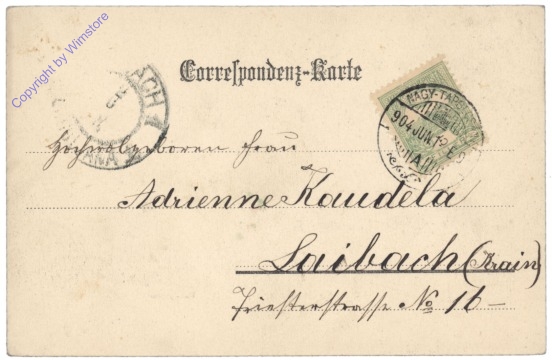 Copyright by Wimstore
Correspondenz-Karte
NAGY-TA
904 JUN 12
BACH 1
Hochwolgeboren Frau
Adrienne Kaudela
Laibach (Krain)
Triesterstrasse No 16-